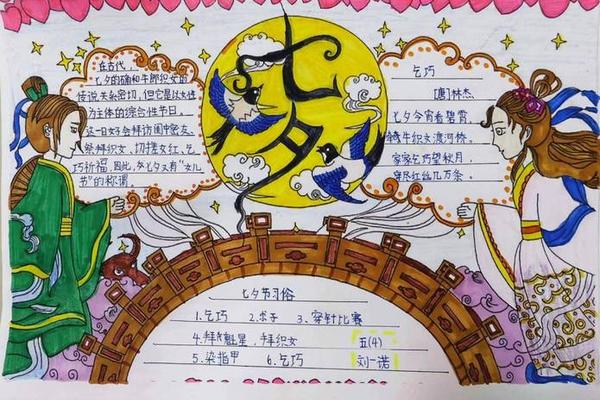 七夕
在古代,
七夕的确和牛郎织女的
传说关系密切,但它是以女性
为主体的综合性节日。
这一日女子会拜访闺中密友、
祭拜织女、切搓女红、乞
巧祈福。因此,七夕又有"女儿
节"的称谓。
乞巧
[唐]林杰
七夕今宵看碧霄,
牵牛织女渡河桥。
家家乞巧望秋月,
穿尽红丝几万条。
七夕节习俗
1.乞巧 2.求子 3、穿针比赛
4.拜魁星、拜织女
5.染指甲 6.乞巧
五(4)
刘一诺